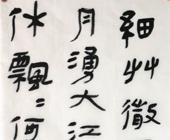 細艸微
月湧大江
休飄〻何